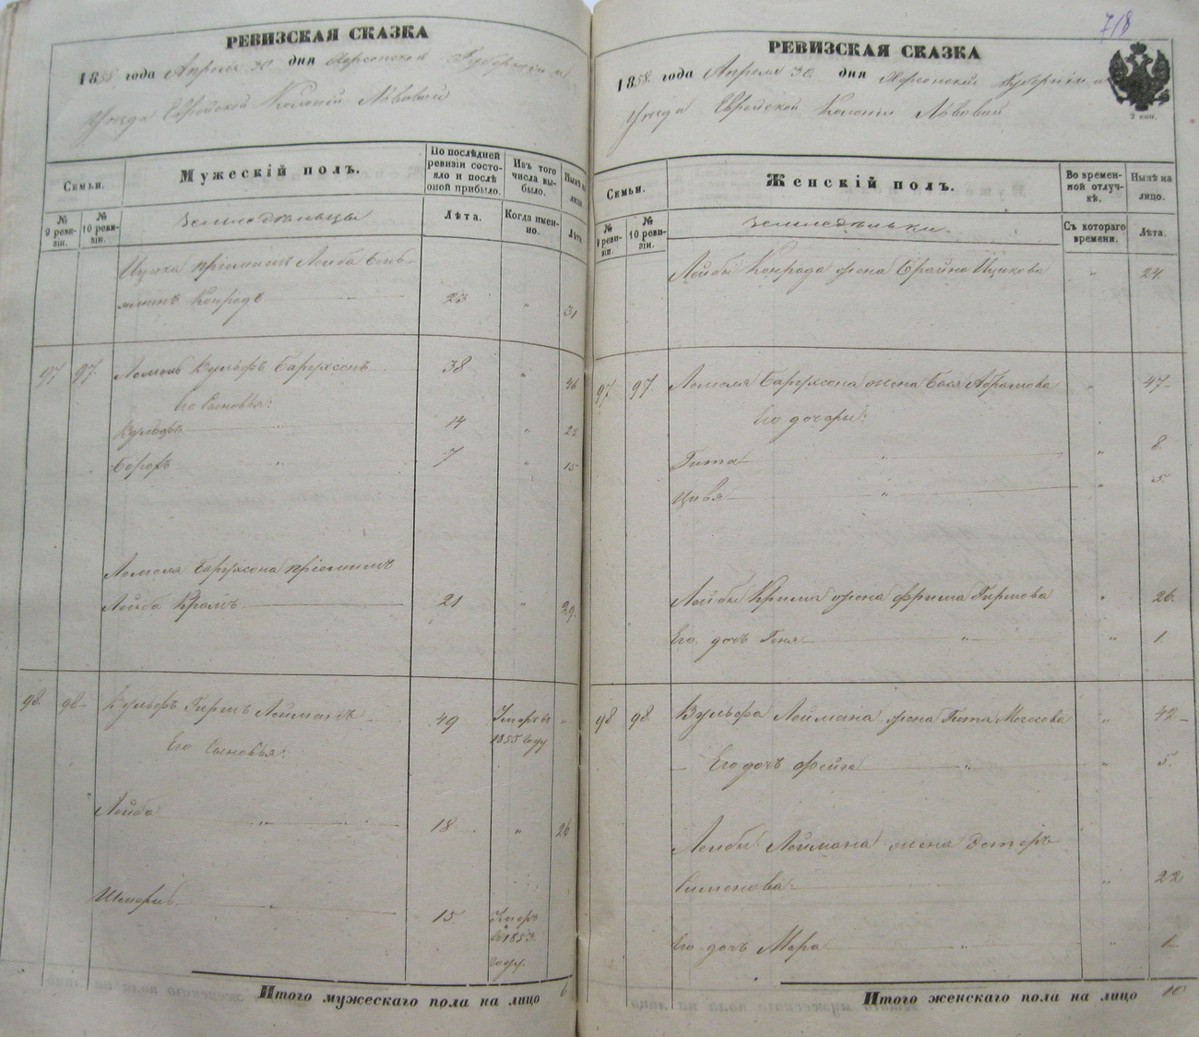 РЕВИЗСКАЯ СКАЗКА
1858 года Апреля 30 дня Херсонской Губерніи и
Уезда Еврейской Колоніи Львовой
Семьи.
Мужескій полъ.
По послѣдней ревизіи состояло и послѣ оной прибыло.
Изъ того числа выбыло.
Нынѣ на лицо.
№ 9 ревизіи.
№ 10 ревизіи.
Земледѣльцы
Лѣта.
Когда именно.
Лѣта.
Ицика пріемышъ Лейба
Конрадъ 23 " 31
97 97 Вульфъ Барухсонъ 38 " 46
Его сыновья:
14 " 22
7 " 15
Барухсона пріемышъ
Лейба 21 " 29
98 98 Вульфъ Гиршъ Лейманъ 49 Умеръ въ 1855 году -
Его сыновья:
Лейба " 18 " 26
" 15 Умеръ въ 1853 году.
Итого мужескаго пола на лицо 6
718
РЕВИЗСКАЯ СКАЗКА
1858 года Апреля 30 дня Херсонской Губерніи и
Уезда Еврейской Колоніи Львовой
2 коп.
Семьи.
Женскій полъ.
Во временной отлучкѣ.
Нынѣ на лицо.
№ 9 ревизіи.
№ 10 ревизіи.
Земледѣльки.
Съ котораго времени.
Лѣта.
Лейбы Конрада жена Брайна Ицикова " 24
97 97 Барухсона жена Бася Абрамова " 47
Его дочери:
Гита " " 8
Цивья " " 5
Лейбы жена Фрима Гиршова " 26
Его дочь Геня " " 1
98 98 Вульфа Леймана жена Гита Мошкова " 42
Его дочь Фейга " " 5
Лейбы Леймана жена Эстеръ
Симонова " 22
Его дочь Мера " " 1
Итого женскаго пола на лицо 10